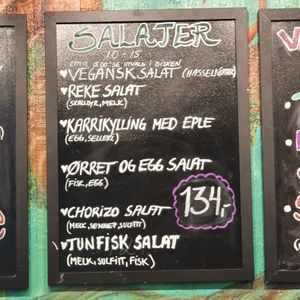 SALATER
10-15
ETTER 15.00-SE UTVALG I DISKEN
♥VEGANSK SALAT (HASSELNØTTER)
♥REKE SALAT
(SKALLDYR, MELK)
♥KARRIKYLLING MED EPLE
(EGG, SELLERI)
♥ØRRET OG EGG SALAT
(FISK, EGG)
134,-
♥CHORIZO SALAT
(MELK, SENNEP, SULFITT)
♥TUNFISK SALAT
(MELK, SULFITT, FISK)